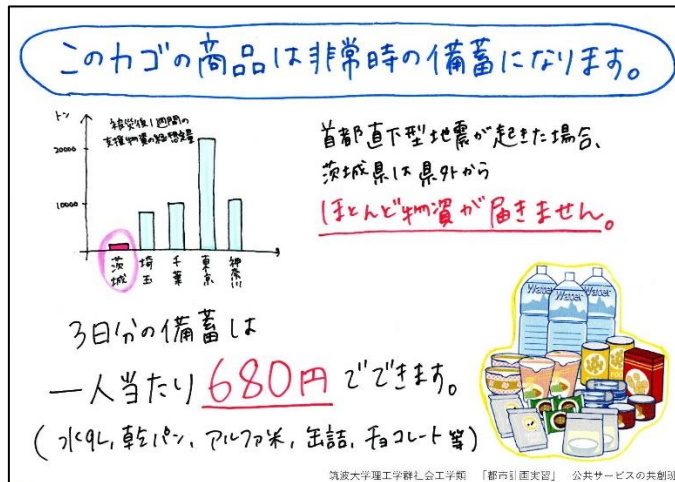 このカゴの商品は非常時の備蓄になります。
トン
被災後1週間の
支援物資の
20000
10000
茨城
埼玉
千葉
東京
神奈川
首都直下型地震が起きた場合、
茨城県は県外から
ほとんど物資が届きません。
3日分の備蓄は
一人当たり680円でできます。
(水2L, 乾パン, アルファ米, 缶詰, チョコレート等)
Water
Water
Water
筑波大学理工学群社会工学類 「都市計画実習」 公共サービスの共創班